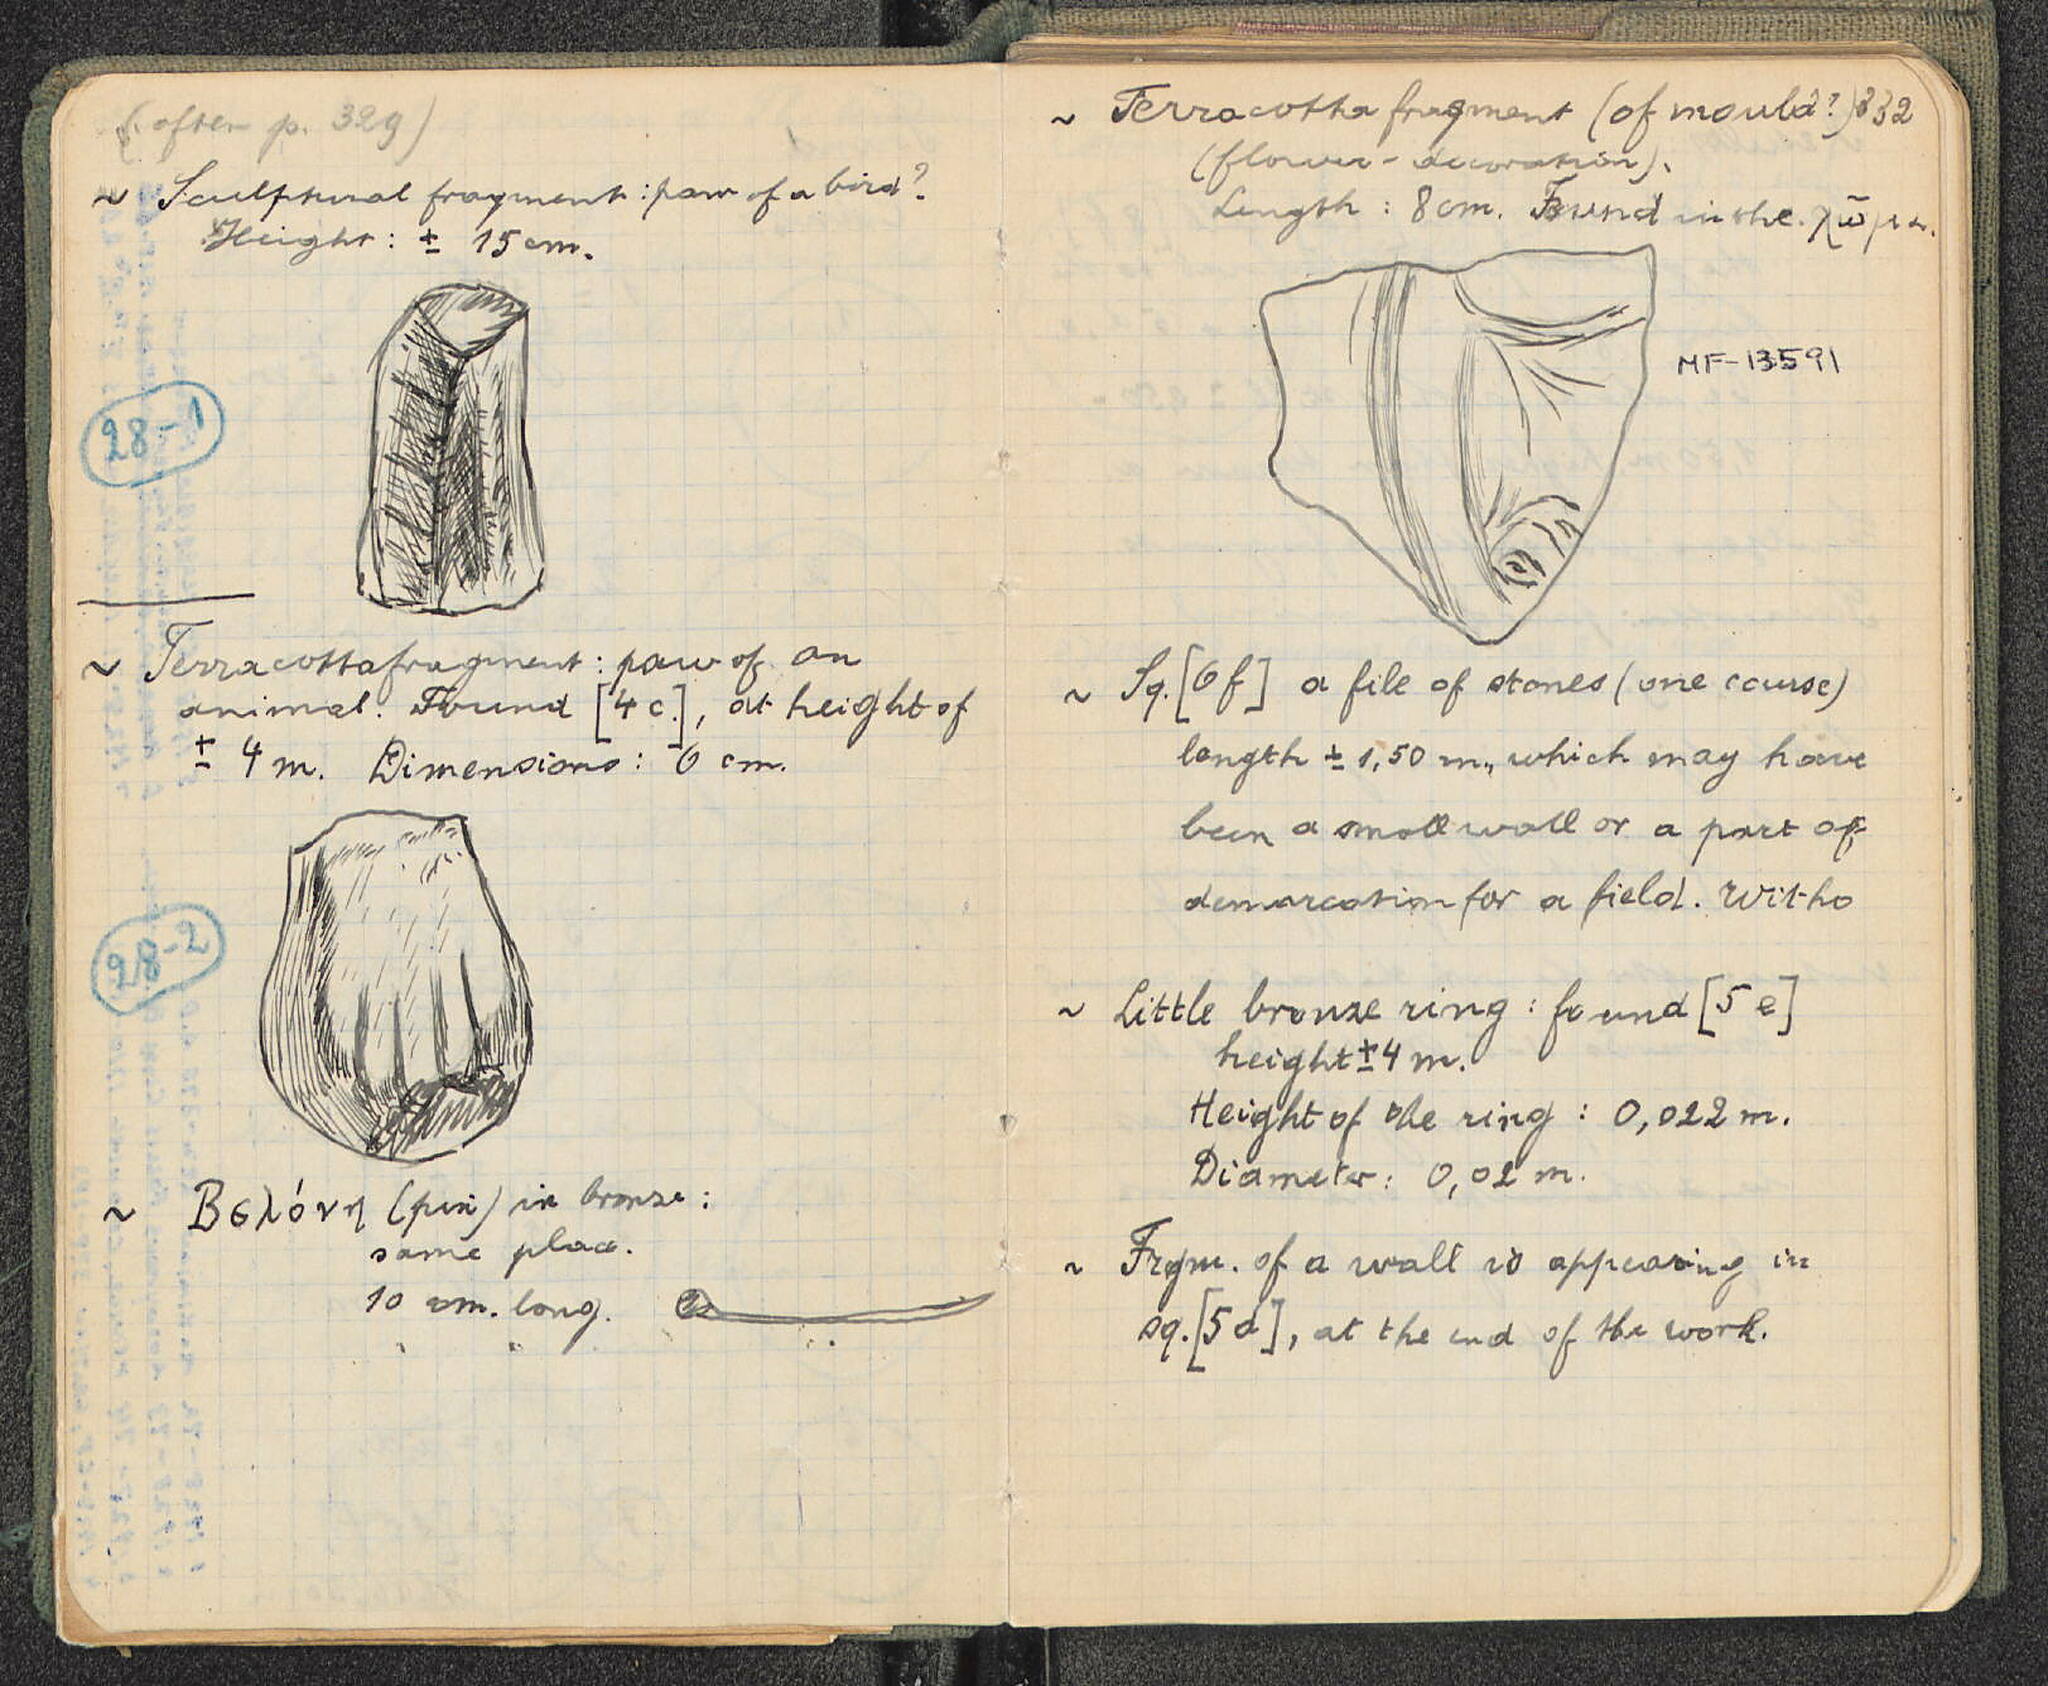 (after p. 329)
~ Sculptural fragment: paw of a bird?
Height: ± 15 cm.
28-1
~ Terracottafragment: paw of an
animal. Found [4c.], at height of
± 4 m. Dimensions: 6 cm.
28-2
~ Βελόνη (pin) in bronze:
same place.
10 cm. long.
~ Terracotta fragment (of mould?) 332
(flower-decoration).
Length: 8 cm. Found in the χῶμα.
MF-13591
~ Sq. [6f] a file of stones (one course)
length ± 1,50 m., which may have
been a small wall or a part of
demarcation for a field. Witho
~ Little bronze ring: found [5e]
height ± 4 m.
Height of the ring: 0,022 m.
Diameter: 0,02 m.
~ Frgm. of a wall is appearing in
sq. [5d], at the end of the work.